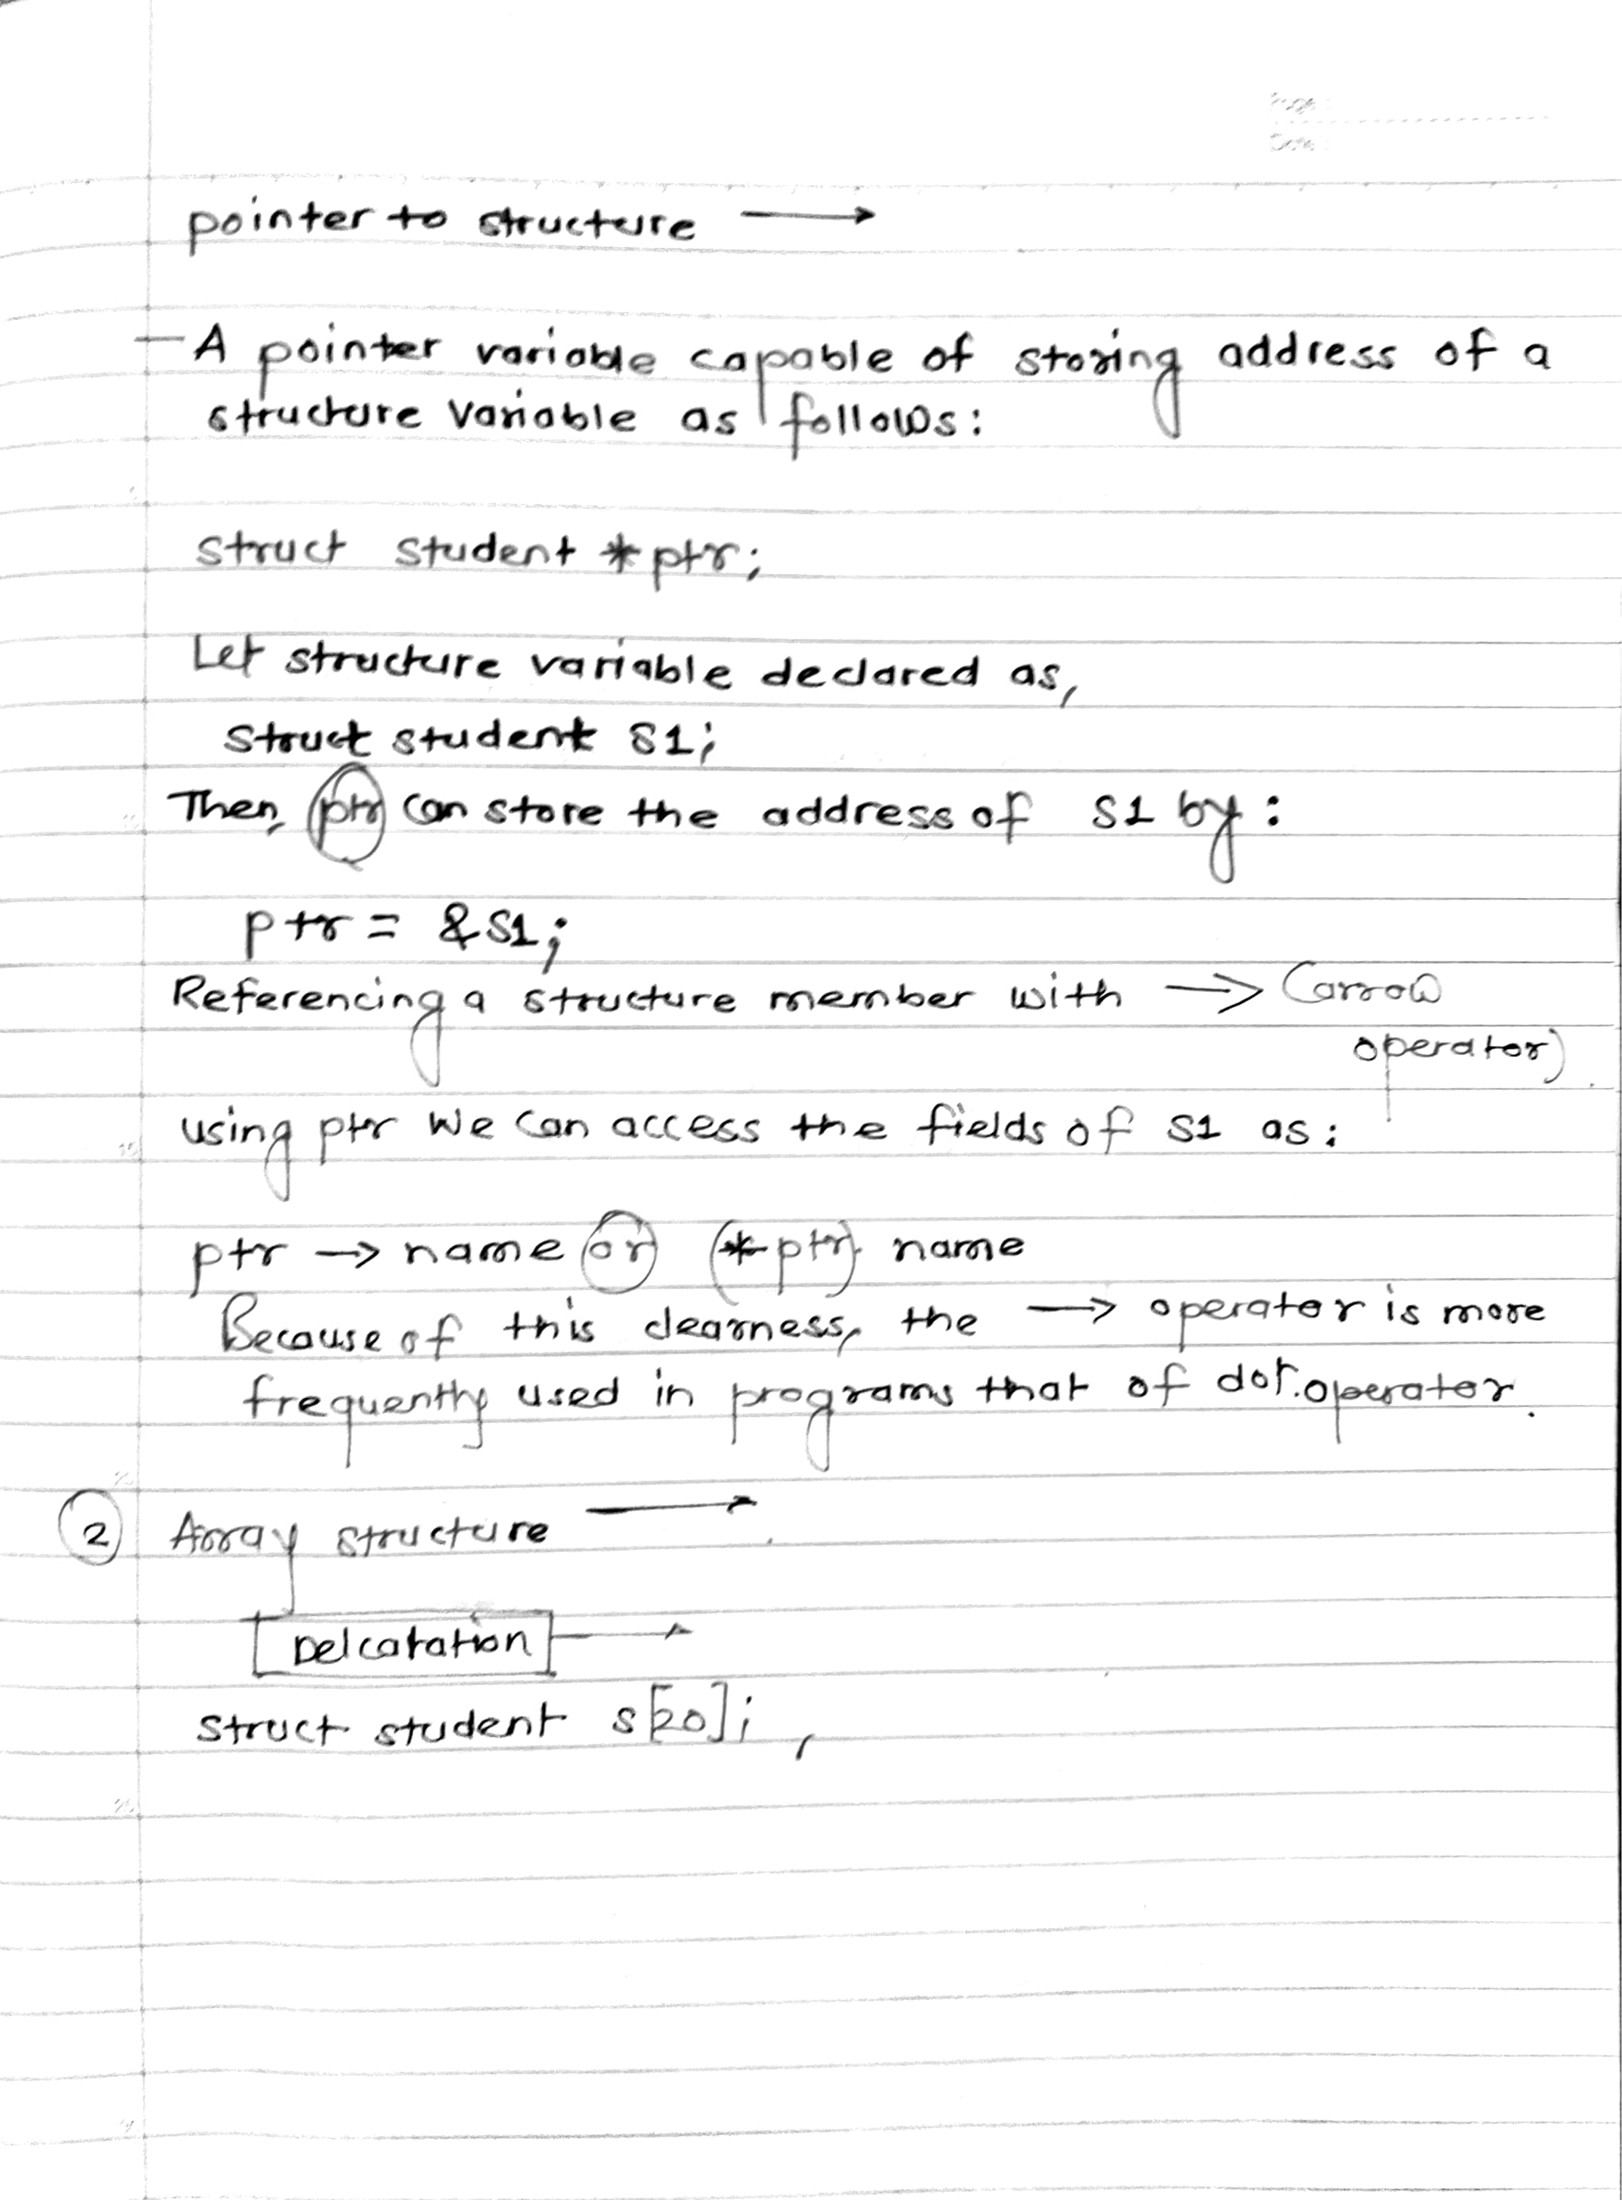 Page
Date
pointer to structure →
- A pointer variable capable of storing address of a
structure variable as follows:
struct student *ptr;
Let structure variable declared as,
struct student S1;
Then, ptr can store the address of S1 by:
ptr = &S1;
Referencing a structure member with → (arrow
operator)
using ptr we can access the fields of S1 as:
ptr → name or (*ptr). name
Because of this clearness, the → operator is more
frequently used in programs that of dot.operator.
2 Array structure →
Delcatation →
struct student s[20];,